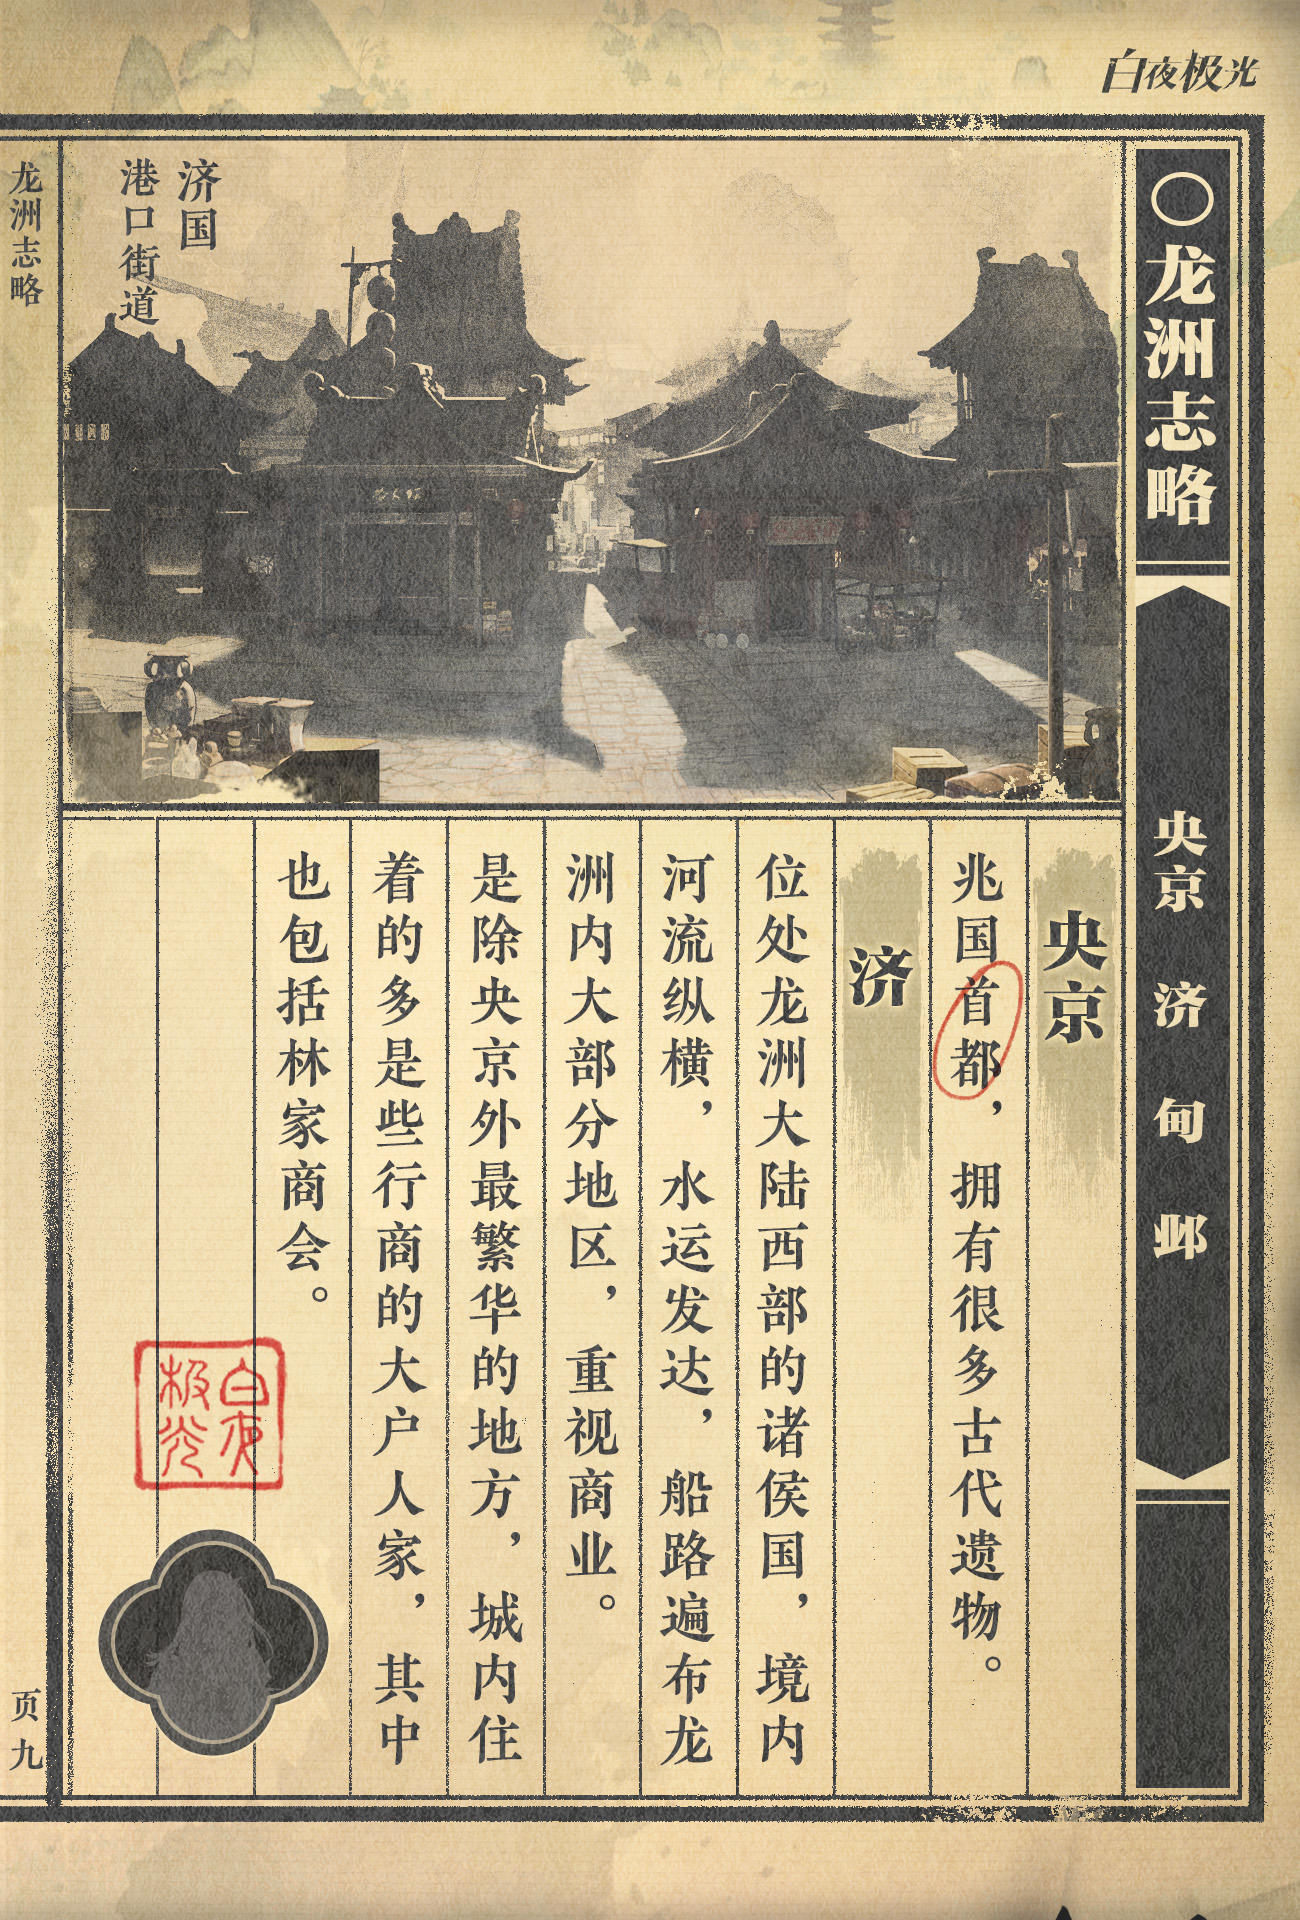 白夜极光
〇龙洲志略
央京 济 甸 邺
济国
港口街道
央京
兆国首都，拥有很多古代遗物。
济
位处龙洲大陆西部的诸侯国，境内
河流纵横，水运发达，船路遍布龙
洲内大部分地区，重视商业。
是除央京外最繁华的地方，城内住
着的多是些行商的大户人家，其中
也包括林家商会。
白夜
极光
龙洲志略
页九